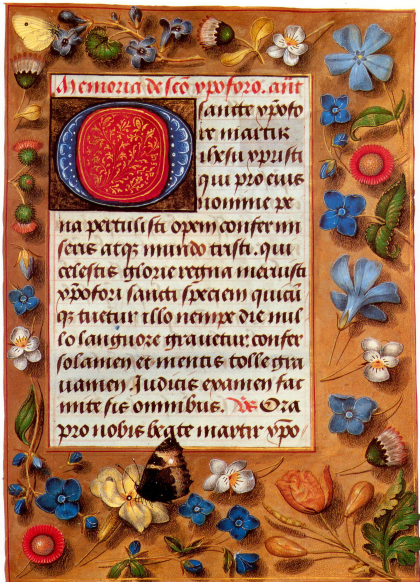 Memoria de sco ypoforo. ant
O sancte ypofo
re martir
ihesu ypristi
qui pro eius
nomine pe
na pertulisti opem confer mi
seris atq; mundo tristi. qui
celestis glorie regna meruisti
ypofori sancti speciem quicu
q; tuetur illo nempe die nul
lo languore grauetur. confer
solamen et mentis tolle gra
uamen. Iudicis examen fac
mite sis omnibus. Vs Ora
pro nobis beate martir ypo